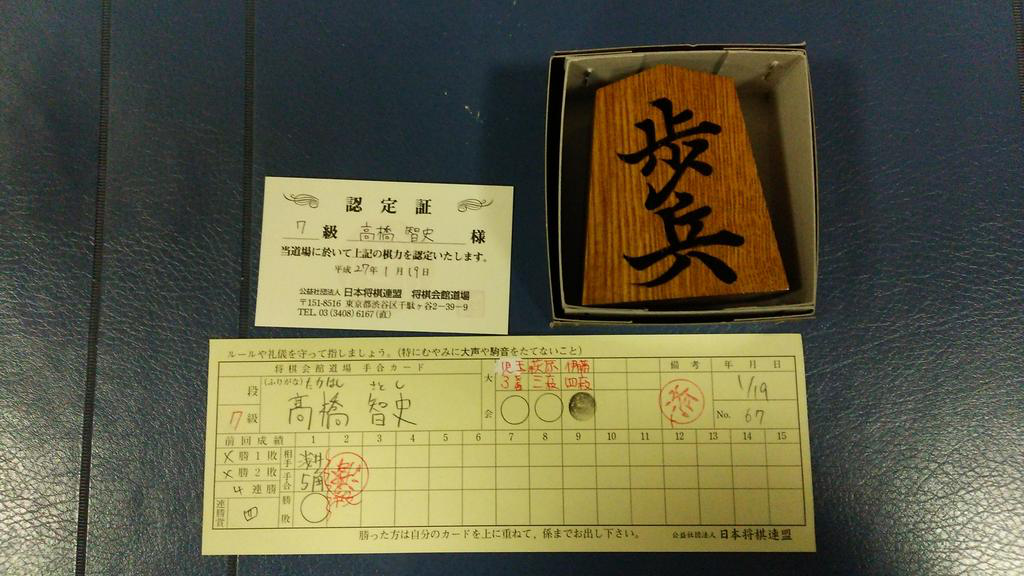 歩兵
認定証
7級 高橋 智史 様
当道場に於いて上記の棋力を認定いたします。
平成27年1月19日
公益社団法人 日本将棋連盟 将棋会館道場
〒151-8516 東京都渋谷区千駄ヶ谷2-39-9
TEL 03(3408)6167(直)
ルールや礼儀を守って指しましょう。(特にむやみに大声や駒音をたてないこと)
将棋会館道場 手合カード
大会
備考
年月日
段
(ふりがな) たかはし さとし
1/19
7級
高橋 智史
No. 67
前回成績 1 2 3 4 5 6 7 8 9 10 11 12 13 14 15
×勝1敗
相手
×勝2敗
手合
5角
4連勝
勝敗
連勝賞 四
勝った方は自分のカードを上に重ねて、係までお出し下さい。
公益社団法人 日本将棋連盟